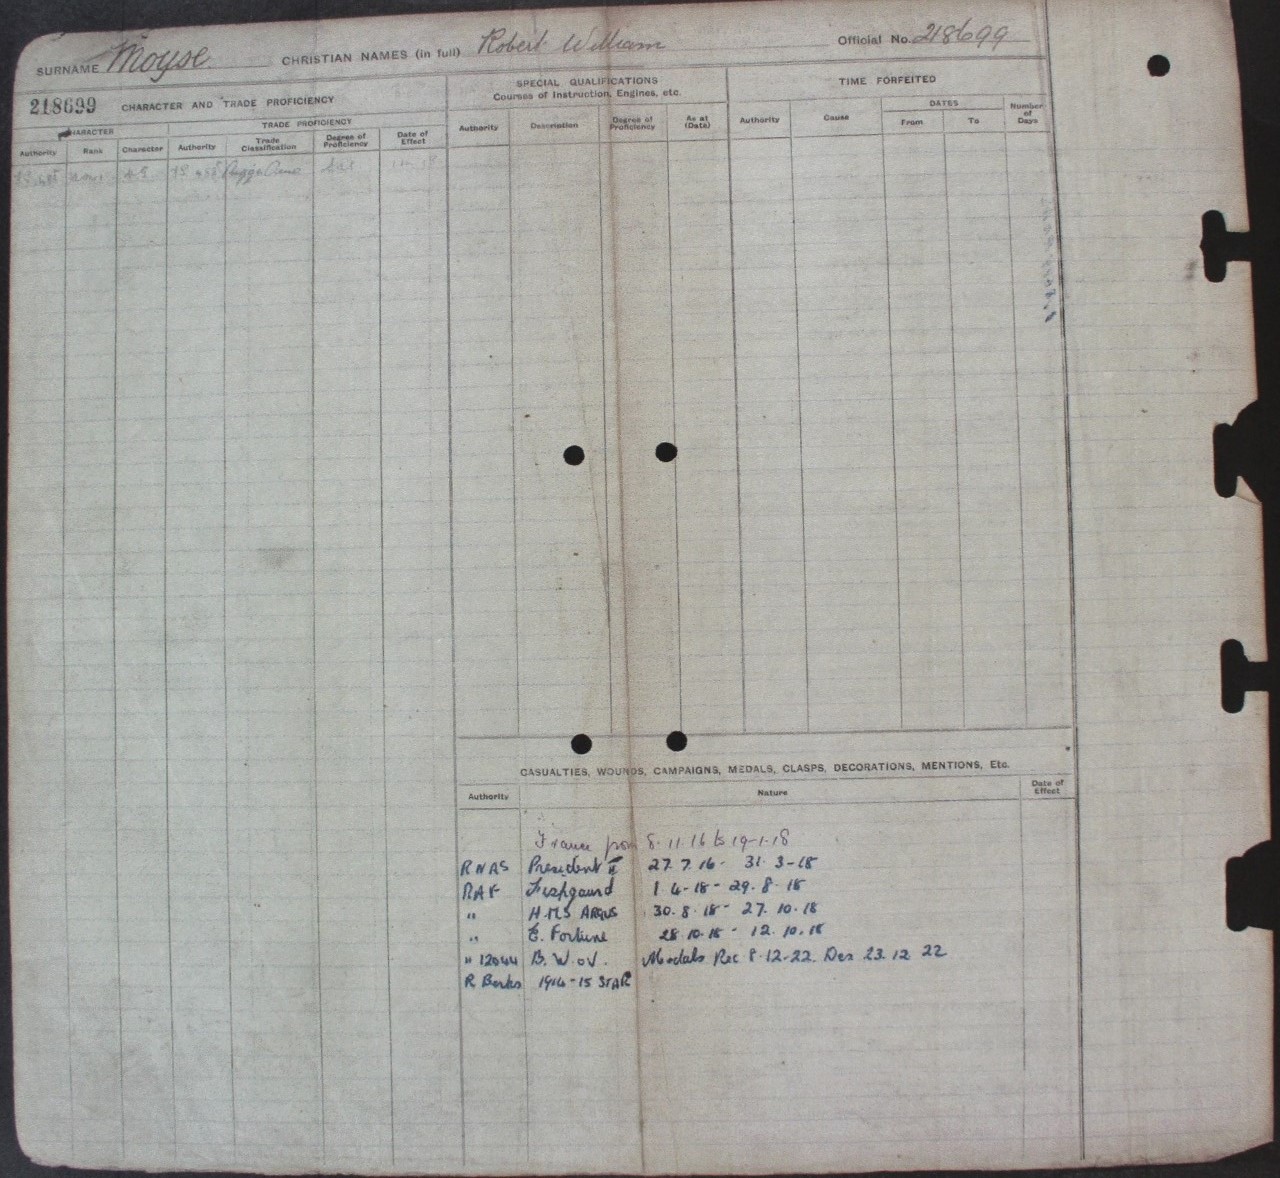 SURNAME Moyse CHRISTIAN NAMES (in full) Robert William Official No. 218699
218699 CHARACTER AND TRADE PROFICIENCY
SPECIAL QUALIFICATIONS
Courses of Instruction, Engines, etc.
TIME FORFEITED
CHARACTER TRADE PROFICIENCY
DATES
Authority Rank Character Authority Trade Classification Degree of Proficiency Date of Effect
Authority Description Degree of Proficiency As at (Date)
Authority Cause From To Number of Days
CASUALTIES, WOUNDS, CAMPAIGNS, MEDALS, CLASPS, DECORATIONS, MENTIONS, Etc.
Authority Nature Date of Effect
France from 8.11.16 to 19-1-18
RNAS President II 27.7.16 - 31.3-18
RAF 1.4-18 - 29.8.18
" H.M.S ARGUS 30.8.18 - 27.10.18
" E. Fortune 28.10.18 - 12.10.18
" 12044 B.W.&V. Medals Rec 8-12-22. Des 23.12 22
R Berks 1914-15 STAR